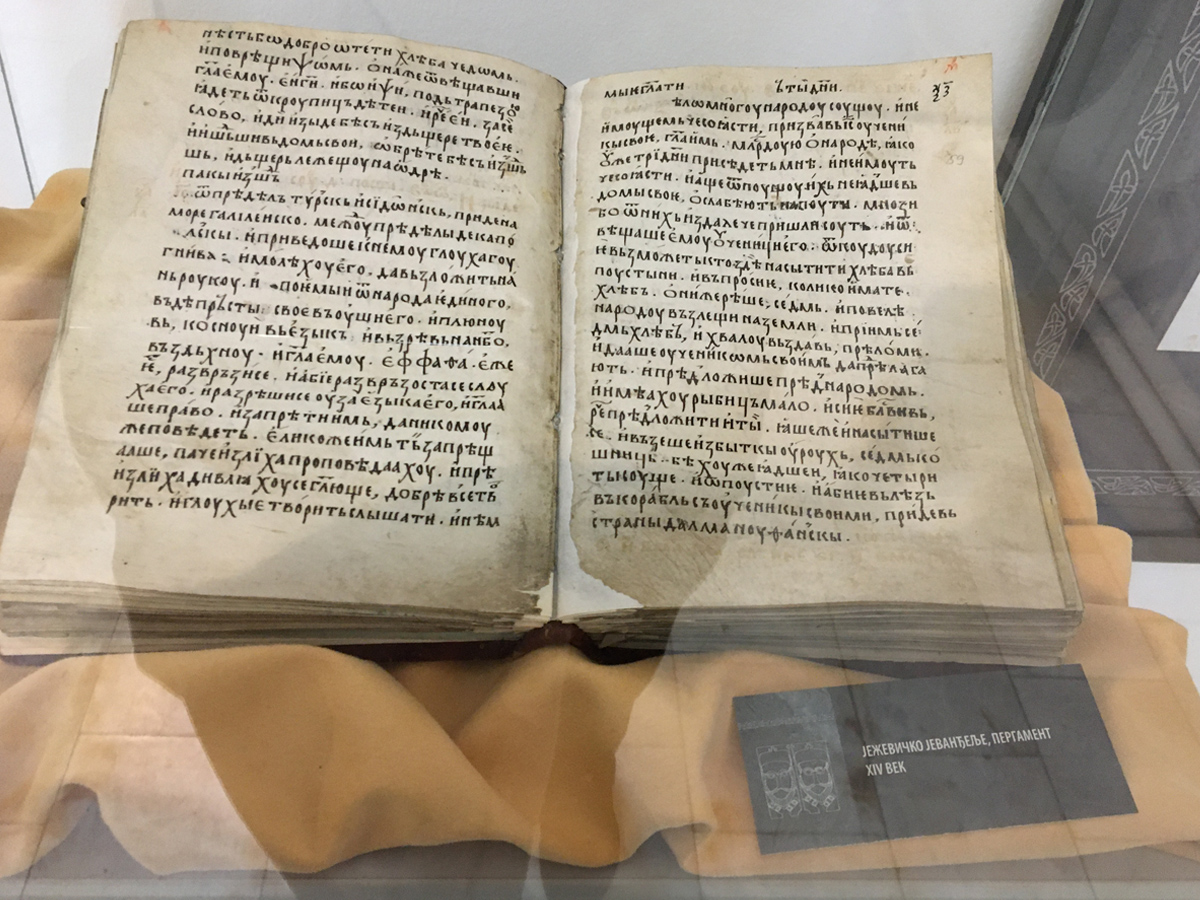 нѣсть бѡ добро ѿети хлѣба чедѡмь.
и поврѣщи ѱѡмь. ѻна же ѿвѣщавши
гл҃а ѥмоу. ен г҃и. ибо и ѱи, подь трапезою
ꙗдеть ѿ кроупиць дѣтеи. и рⷱ҇е еи. за се
слово, иди изыде бѣсь из дьщере твоѥ.
и шьшши вь домь свои, ѡбрѣте бѣсь изⸯшьⸯ
шь, и дьщерь лежещоу на ѡдрѣ.
пакы изⸯшь
ѿ прѣдѣль тѵрьскь и сідѡньскь, приде на
море галілеиско. междⸯоу прѣдѣлы декапо
льскы. и приведоше к немоу глоуха гоу
гнива. и молѣхоу ѥго. да вьзложить на
нь роукоу. и поемь и ѿ народа ѥдиного,
вьдѣ прьсты своѥ вь оуши ѥго. и плюноу
вь, косноу и вь ѥзыкь. и вьзрѣвь на нбо,
вьздьхноу. и гла ѥмоу. еффаѳа. еже
ѥ, развръзи се. и абїе развръзоста се слоу
ха ѥго. и разрѣши се оуза ѥзыка ѥго, и гла
ше право. и запрѣти имь, да никомоу
же поведеть. ѥлико же имь ть запрѣщ
аше, паче изліха проповѣдаахоу. и прѣ
изліха дивлꙗхоу се глюще, добрѣ все тво
рить. и глоухыѥ творить слышати. и нѣм
мыѥ глати
вь ты дни.
ѕѣлѡ многоу народоу соущоу. и не
имоущемь чесо ꙗсти, призвавь іс оучени
кы своѥ, гла имь. млрдоую ѻ народѣ, ꙗко
оуже трїи дни присѣдеть мнѣ. и не имоуть
чесо ꙗсти. и аще ѿпоущоу ихь не ꙗдше вь
домы своѥ, ослабѣють на поути. мнози
бо ѿ нихь издалече пришли соуть. и ѿ
вѣщаше ѥмоу оученици ѥго. ѿкоудоу си
ѥ вьзможеть кто здѣ насытити хлѣба вь
поустыни. и вьпроси ѥ, колико имате.
хлѣбь. ѻни же рѣше, седмь. и повелѣ
народоу вьзлещи на земли. и приимь се
дмь хлѣбь, и хвалоу вьздавь, прѣломи.
и даꙗше оученикѡмь своимь да прѣдлага
ють. и прѣдложише прѣд народомь.
и имѣахоу рыбиць мало. и сиѥ блвивь,
рⷱ҇е прѣдложити и ты. ꙗше же и насытише
се. и вьзеше избыткы оуроухь, седмь ко
шниць. бѣхоу же ꙗдшеи, ꙗко четыри
тысоуще. и ѿпоусти ѥ. и абиѥ вьлѣзь
вь корабль сь оученикы своими, приде вь
страны далманоуѳанскы.
89
ЈЕЖЕВИЧКО ЈЕВАНЂЕЉЕ, ПЕРГАМЕНТ
XIV ВЕК